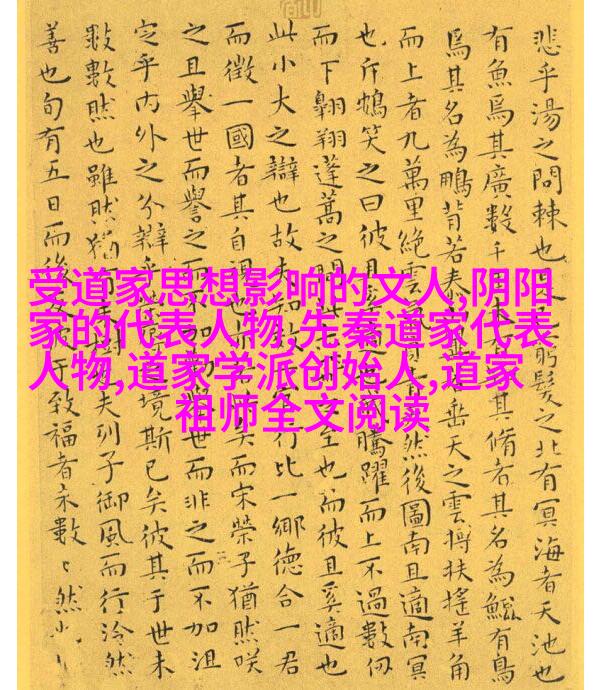 受道家思想影响的文人,阴阳
家的代表人物,先秦道家代表
人物,道家学派创始人,道家
祖师全文阅读
悲乎湯之問棘也窮髮之北有冥海者天池也
有魚焉其廣數千其脩者其名為鯤有鳥
焉其名為鵬背若泰垂天之雲摶扶搖羊角
而上者九萬里絕雲氣然後圖南且適南冥
也斥鴳笑之曰彼且騰躍而上不過數仞
而下翱翔蓬蒿之間至也而彼且奚適也
此小大之辯也故夫知行比一鄉德合一君
而徵一國者其自視也矣而宋榮子猶然咲
之且舉世而譽之舉世而非之而不加沮
定乎內外之分辯乎境斯已矣彼其于世未
數數然也雖然猶夫列子御風而行泠然
善也旬有五日而後于致福者未數〻然